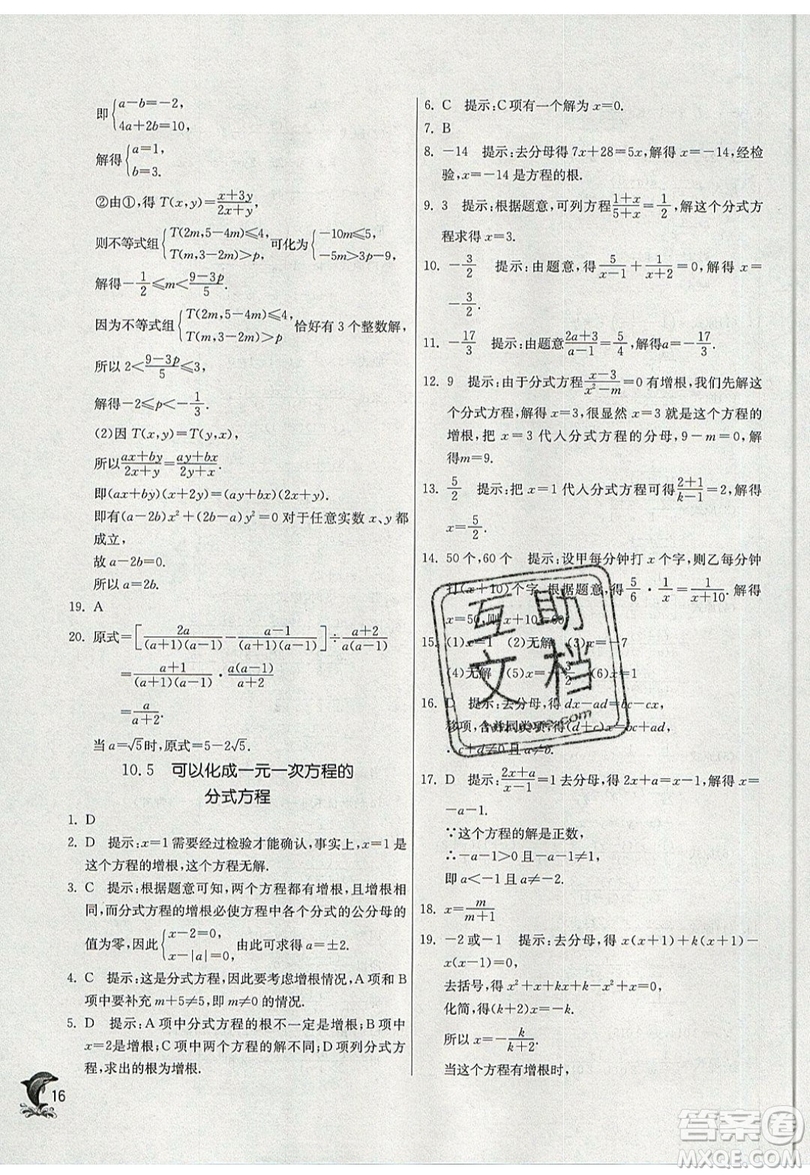 即{a-b=-2,
4a+2b=10,
解得{a=1,
b=3.
②由①,得 T(x,y)=(x+3y)/(2x+y),
则不等式组{T(2m,5-4m)≤4, T(m,3-2m)>p, 可化为{-10m≤5, -5m>3p-9.
解得-1/2≤m<(9-3p)/5.
因为不等式组{T(2m,5-4m)≤4, T(m,3-2m)>p 恰好有 3 个整数解,
所以 2<(9-3p)/5≤3.
解得-2≤p<-1/3.
(2)因 T(x,y)=T(y,x),
所以(ax+by)/(2x+y)=(ay+bx)/(2y+x).
即(ax+by)(x+2y)=(ay+bx)(2x+y).
即有(a-2b)x²+(2b-a)y²=0 对于任意实数 x、y 都
成立,
故 a-2b=0.
所以 a=2b.
19. A
20. 原式=[2a/((a+1)(a-1))-(a-1)/((a+1)(a-1))]÷(a+2)/(a-1)
=(a+1)/((a+1)(a-1))·(a-1)/(a+2)
=
当 a=√5时,原式=5-2√5.
10.5 可以化成一元一次方程的
分式方程
1. D
2. D 提示:x=1 需要经过检验才能确认,事实上,x=1 是
这个方程的增根,这个方程无解.
3. C 提示:根据题意可知,两个方程都有增根,且增根相
同,而分式方程的增根必使方程中各个分式的公分母的
值为零,因此{x-2=0, x-|a|=0. 由此可求得 a=±2.
4. C 提示:这是分式方程,这里要考虑增根情况,A 项和 B
项中要补充 m+5≠5,即 m≠0 的情况.
5. D 提示:A 项中分式方程的根不一定是增根;B 项中
有可能无增根;C 项中两个方程的解不同;D 项列分式方
程,求出的根为增根.
16
6. C 提示:C 项有一个解为 x=0.
7. B
8. -14 提示:去分母得 7x+28=5x,解得 x=-14,经检
验,x=-14 是方程的根.
9. 3 提示:根据题意,可列方程(1+x)/(5+x)=1/2,解这个分式方
程求得 x=3.
10. -3/2 提示:由题意,得 5/(x-1)+1/(x+2)=0,解得 x=
-3/2.
11. -17/3 提示:由题意(2a+3)/(a-1)=5/4,解得 a=-17/3.
12. 9 提示:由于分式方程(x-3)/(x²-m)=0 有增根,我们先解这
个分式方程,解得 x=3,很显然 x=3 就是这个方程的
增根,把 x=3 代入分式方程的分母,9-m=0,解
得m=9.
13. 5/2 提示:把 x=1 代入分式方程可得(2+1)/(k-1)=2,解得
x=5/2.
14. 50 个,60 个 提示:设甲每分钟打 x 个字,则乙每分钟
打(x+10)个字,根据题意,得 5/6·1/x=1/(x+10). 解得
x=50,所以 x+10=60.
15. (1)x=1 (2)无解 (3)x=-7
(4)无解 (5)x=-1
16. C 提示:去分母,得 dx-ad=bc-cx,
移项,合并同类项,得(d+c)x=bc+ad,
∴c+d≠0.
17. D 提示:(2x+a)/(x-1)=1,
x=-a-1.
∵这个方程的解是正数,
∴-a-1>0 且-a-1≠1,
即 a<-1 且 a≠-2.
18. x=m/(m+1)
19. -2或-1 提示:去分母,得 x(x+1)+k(x+1)-x(x-1)=0,
去括号,得 x²+x+kx+k-x²+x=0,
化简,得(k+2)x=-k.
所以 x=-k/(k+2).
当这个方程有增根时,
互助
文档
答案圈
MXQE.COM